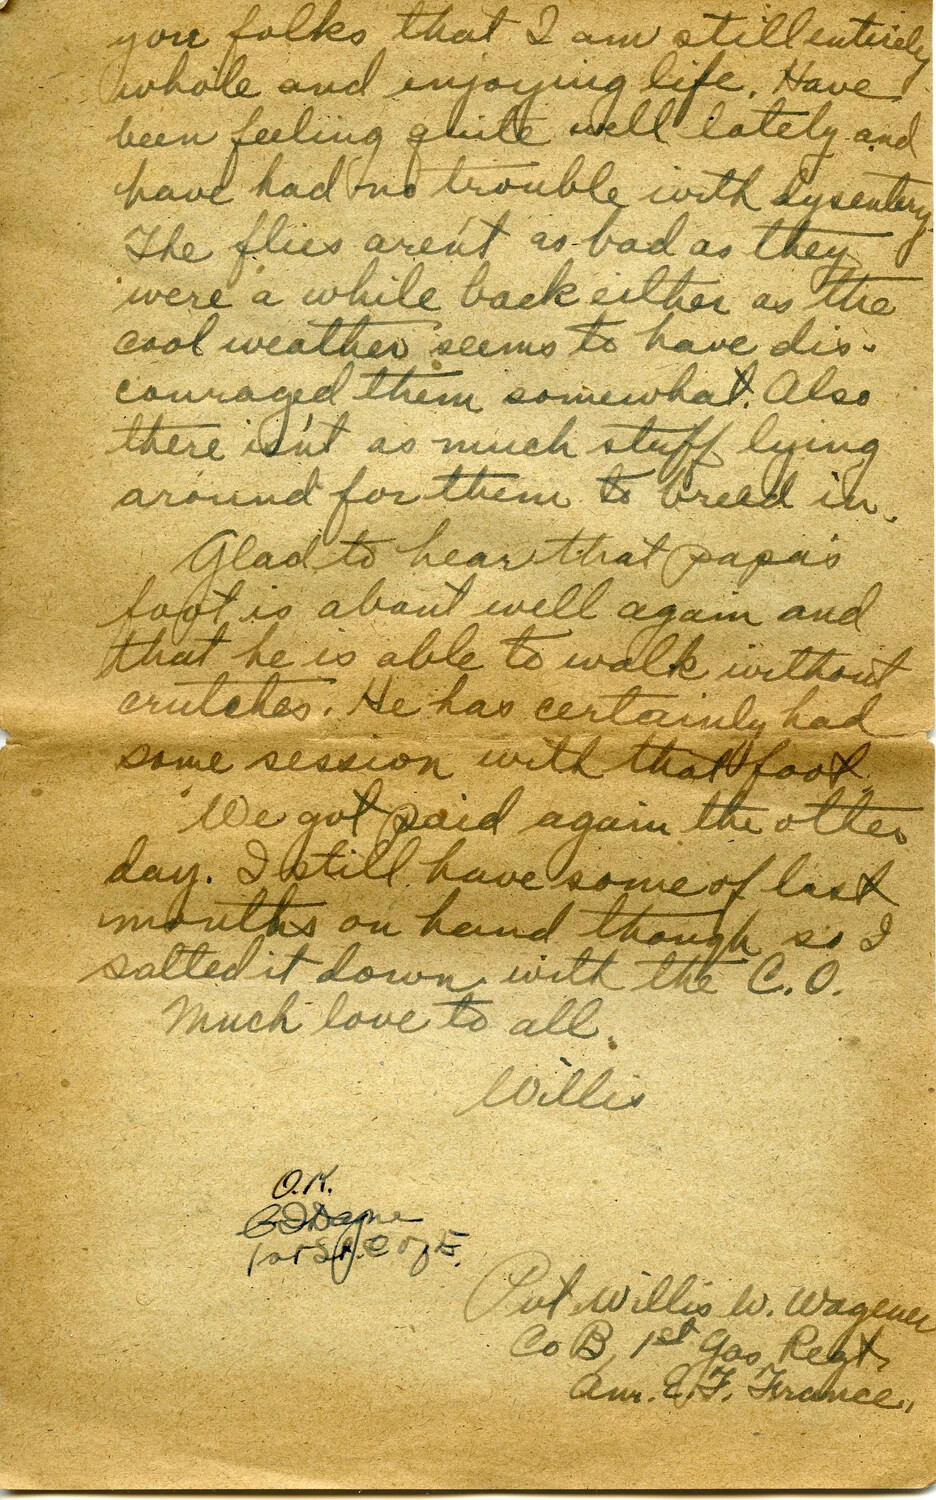 you folks that I am still entirely
whole and enjoying life. Have
been feeling quite well lately and
have had no trouble with dysentery.
The flies aren't as bad as they
were a while back either as the
cool weather seems to have dis-
couraged them somewhat. Also
there isn't as much stuff lying
around for them to breed in.
Glad to hear that papa's
foot is about well again and
that he is able to walk without
crutches. He has certainly had
some session with that foot.
We got paid again the other
day. I still have some of last
months on hand though so I
salted it down with the C.O.
Much love to all.
Willis
O.K.
1st Lt. E
Pvt Willis W. Wagener
Co B, 1st Gas Regt,
Am. E. F. France.,